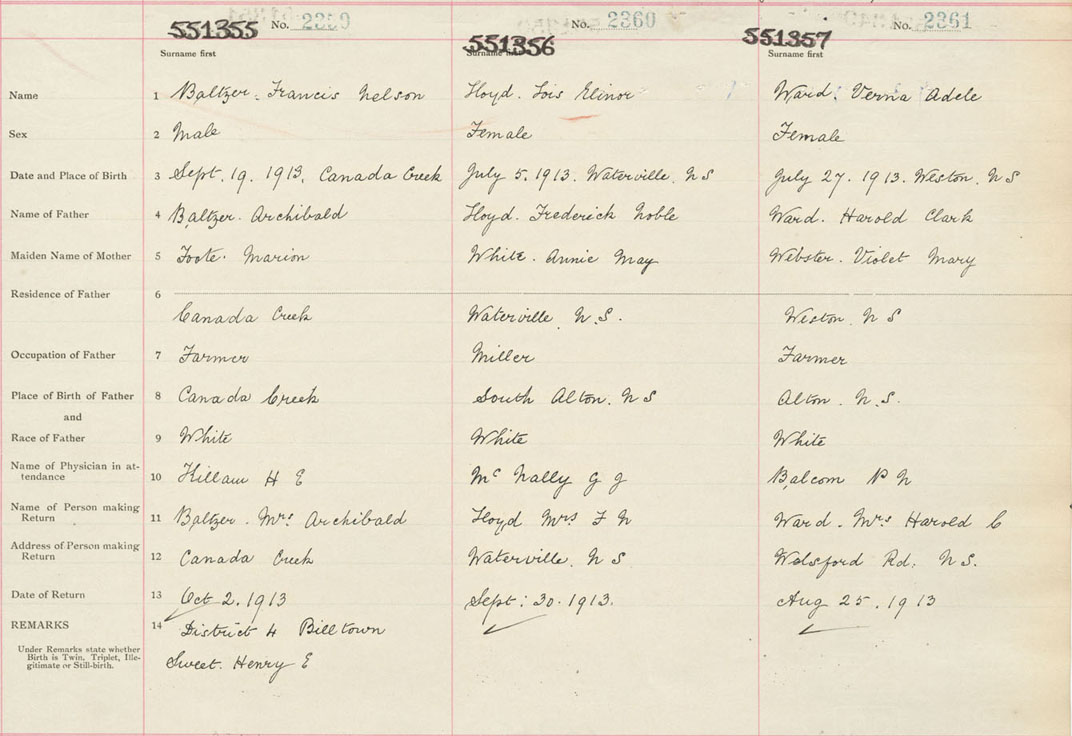 551355 No. 2359
551356 No. 2360
551357 No. 2361
Surname first Surname first Surname first
Name 1 Baltzer. Francis Nelson Lloyd. Lois Elinor Ward. Verna Adele
Sex 2 Male Female Female
Date and Place of Birth 3 Sept. 19. 1913. Canada Creek July 5. 1913. Waterville. N S July 27. 1913. Weston. N S
Name of Father 4 Baltzer. Archibald Lloyd. Frederick Noble Ward. Harold Clark
Maiden Name of Mother 5 Foote. Marion White. Annie May Webster. Violet Mary
Residence of Father 6
Canada Creek Waterville N.S. Weston N S
Occupation of Father 7 Farmer Miller Farmer
Place of Birth of Father 8 Canada Creek South Alton. N S Alton. N.S.
and
Race of Father 9 White White White
Name of Physician in at-
tendance 10 H E Mc Nally G G Balcom P N
Name of Person making
Return 11 Baltzer. Mrs. Archibald Lloyd Mrs F N Ward. Mrs Harold C
Address of Person making
Return 12 Canada Creek Waterville. N S Welsford Rd. N S.
Date of Return 13 Oct 2. 1913 Sept: 30. 1913. Aug 25. 1913
REMARKS 14 District 4 Billtown
Under Remarks state whether
Birth is Twin, Triplet, Ille-
gitimate or Still-birth.
Sweet. Henry E